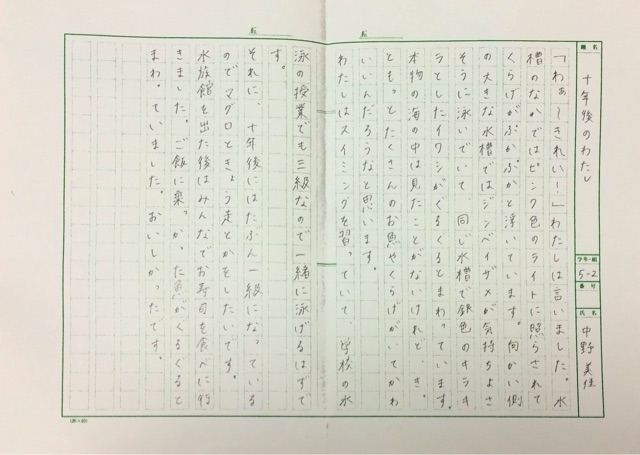 題名 十年後のわたし 学年・組 5-2 番号 氏名 中野 美佳
「わぁ〜きれい!」わたしは言いました。水
槽のなかではピンク色のライトに照らされて
くらげがぷかぷかと浮いています。向かい側
の大きな水槽ではジンベイザメが気持ちよさ
そうに泳いでいて、同じ水槽で銀色のキラキ
ラとしたイワシがぐるぐるとまわっています。
本物の海の中は見たことがないけれど、きっ
ともっとたくさんのお魚やくらげがいてかわ
いいんだろうなと思います。
わたしはスイミングを習っていて、学校の水
泳の授業でも三級なので一緒に泳げるはずで
す。
それに、十年後にはたぶん一級になっている
のでマグロときょう走とかをしたいです。
水族館を出た後はみんなでお寿司を食べに行
きました。ご飯に乗っかった魚がぐるぐると
まわっていました。おいしかったです。